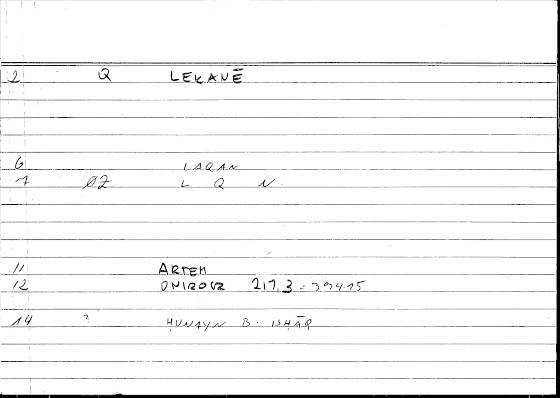 2 Q LEKANĒ
6 LAQAN
7 ØZ L Q N
11 ARTEM
12 ONIROCR 217.3 = 394.15
14 ? ḤUNAYN B. ISḤĀQ